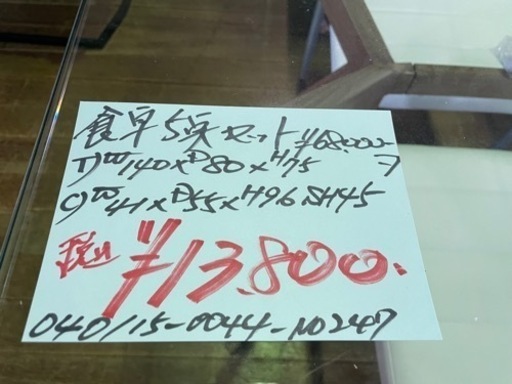 食卓5点セット ¥68000-
T) W140×D80×H75
C) W41×D55×H96 SH45
税込 ¥13.800.
040115-0044-NO247